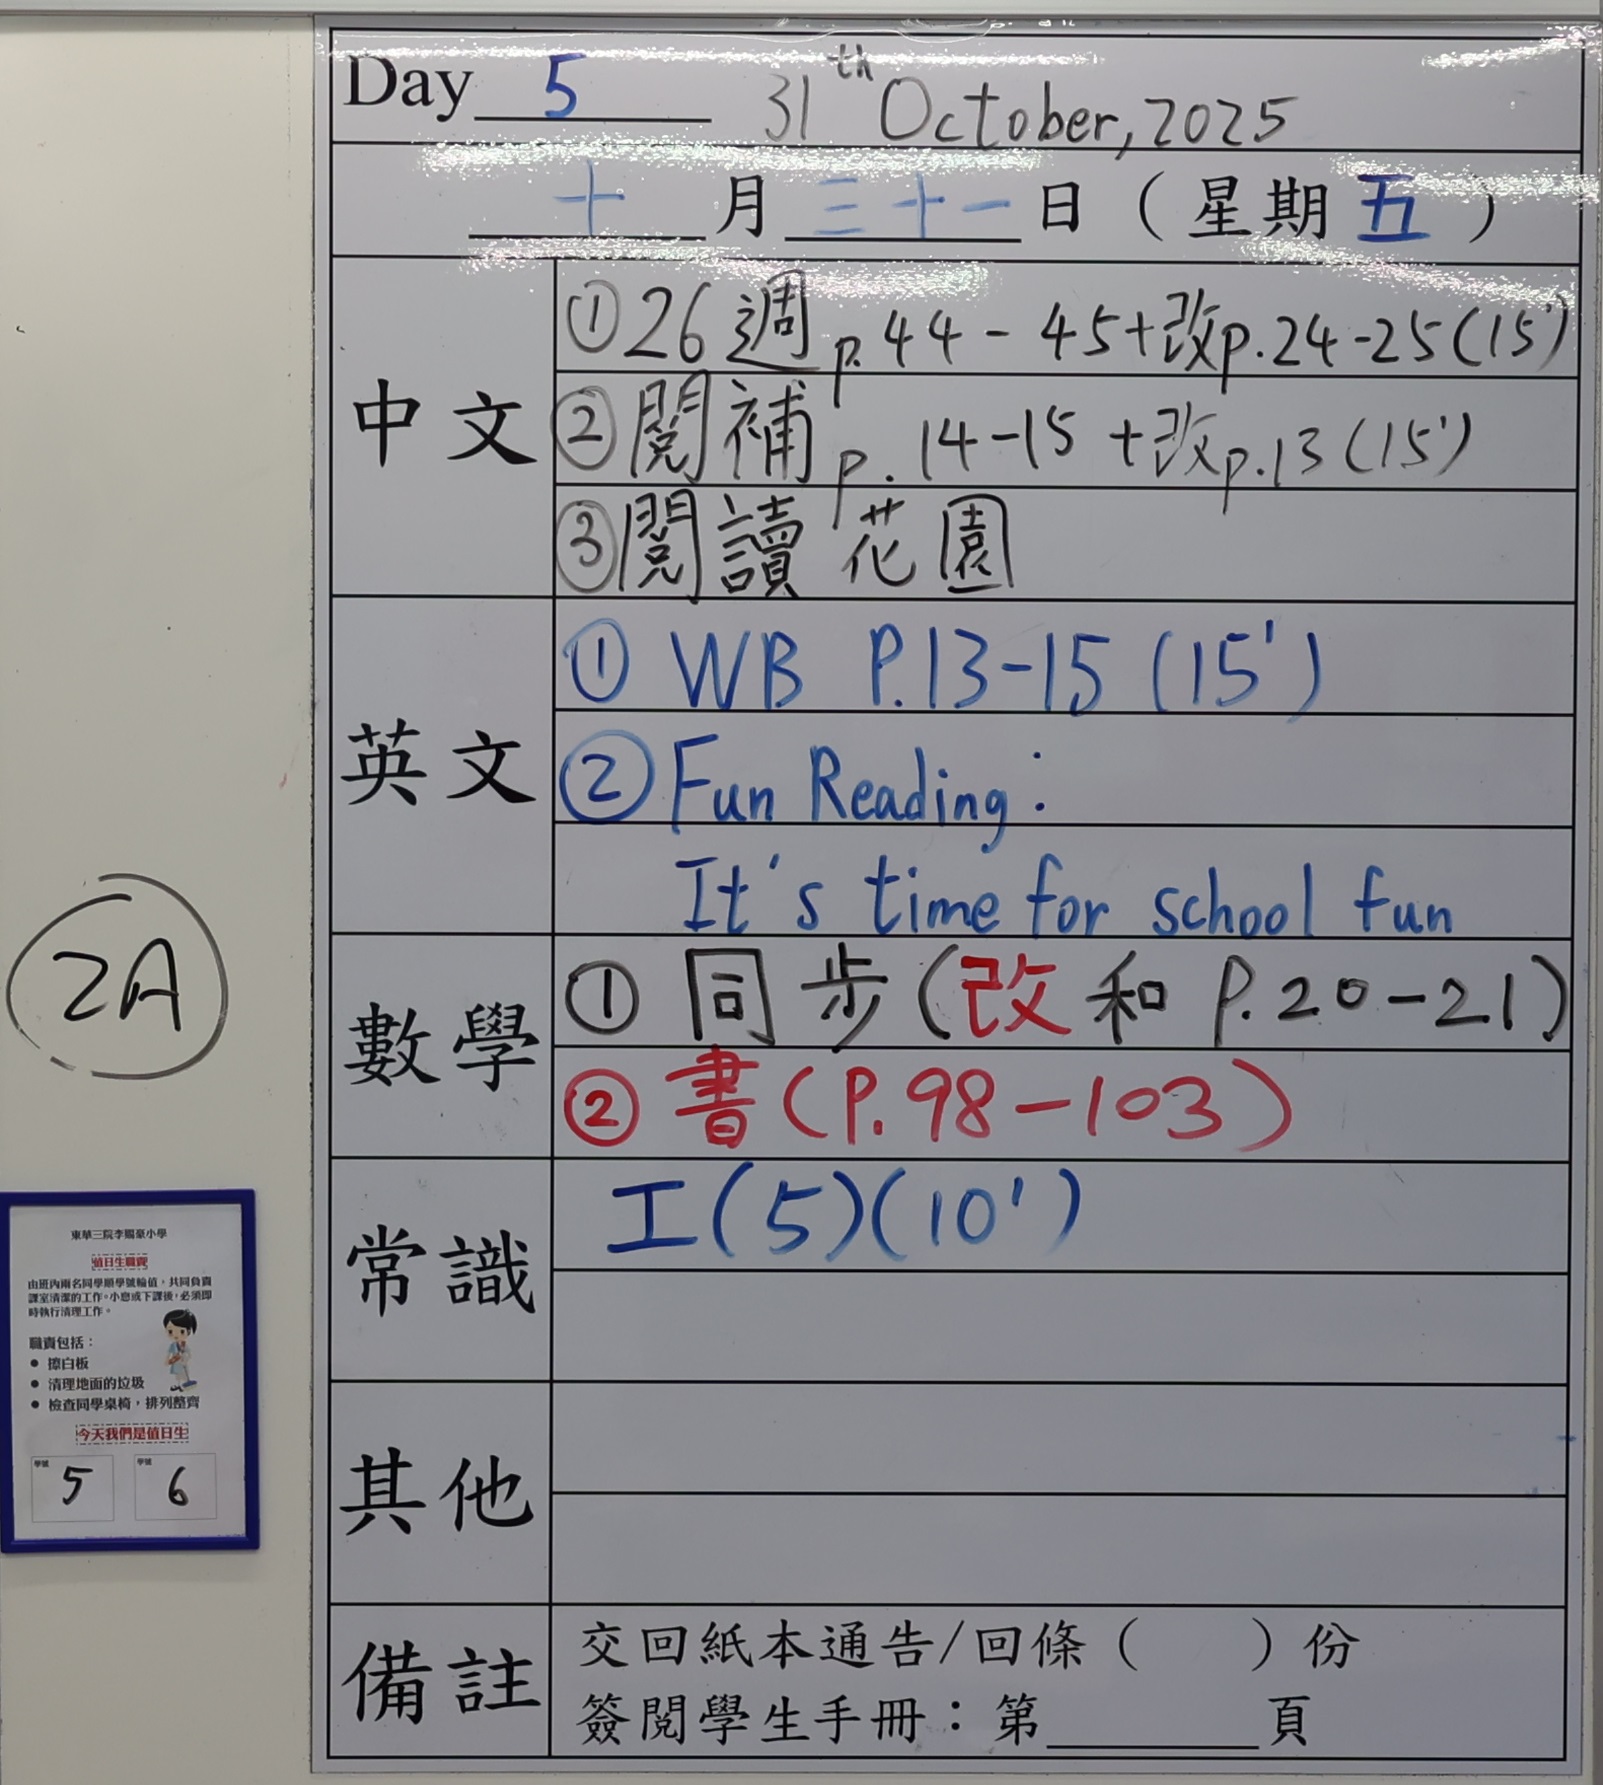 Day 5 31th October, 2025
十月三十一日（星期五）
中文
①26週p.44-45+改p.24-25(15')
②閱補p.14-15+改p.13(15')
③閱讀花園
英文
① WB P.13-15 (15')
② Fun Reading:
It's time for school fun
數學
① 同步(改和P.20-21)
② 書(P.98-103)
常識
工(5)(10')
其他
備註
交回紙本通告/回條（ ）份
簽閱學生手冊：第______頁
2A
東華三院李賜豪小學
值日生職責
由班內兩名同學順學號輪值，共同負責
課室清潔的工作。小息或下課後，必須即
時執行清理工作。
職責包括：
● 擦白板
● 清理地面的垃圾
● 檢查同學桌椅，排列整齊
今天我們是值日生
學號 5 學號 6